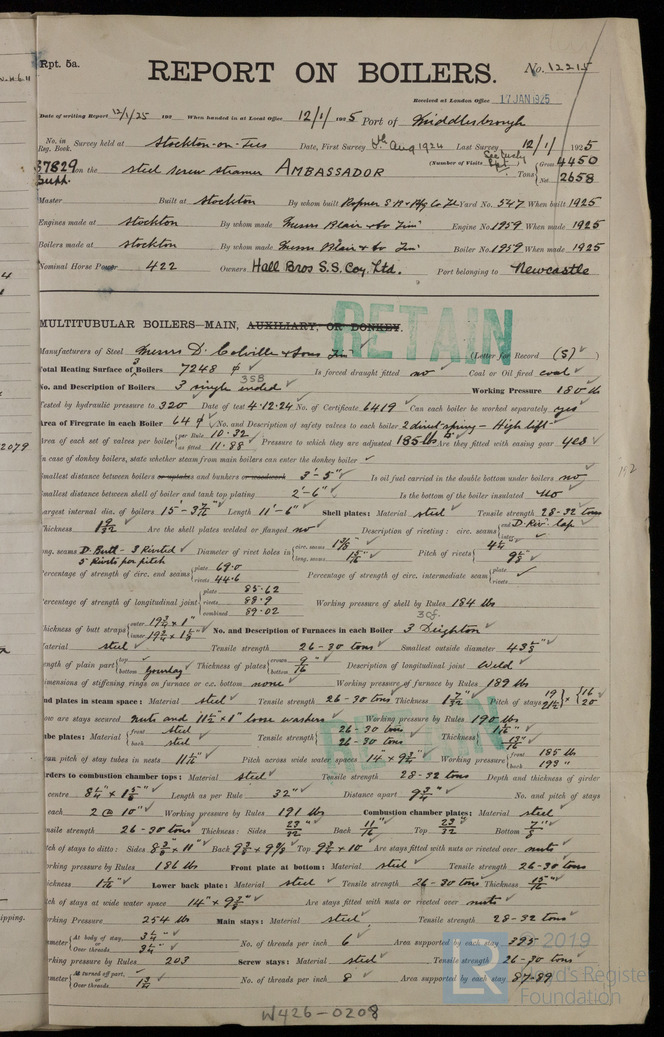 Rpt. 5a.
REPORT ON BOILERS.
No. 12215
Received at London Office 17 JAN 1925
Date of writing Report 12/1/25 192 When handed in at Local Office 12/1/ 1925 Port of Middlesbrough
No. in Reg. Book. Survey held at Stockton-on-Tees Date, First Survey Aug 1924 Last Survey 12/1/ 1925
37829 Supp. on the steel screw steamer AMBASSADOR (Number of Visits ) Tons Gross 4450 Net 2658
Master Built at Stockton By whom built Ropner S B & Rpg Co Ld Yard No. 547 When built 1925
Engines made at Stockton By whom made Messrs Blair & Co Lim Engine No. 1959 When made 1925
Boilers made at Stockton By whom made Messrs Blair & Co Lim Boiler No. 1959 When made 1925
Nominal Horse Power 422 Owners Hall Bros S.S. Coy. Ltd. Port belonging to Newcastle
RETAIN
MULTITUBULAR BOILERS—MAIN, AUXILIARY, OR DONKEY.
Manufacturers of Steel Messrs D. Colville & Sons Lim (Letter for Record (S) )
Total Heating Surface of Boilers 7248 Is forced draught fitted no Coal or Oil fired coal
3SB
No. and Description of Boilers 3 single ended Working Pressure 180 lb
Tested by hydraulic pressure to 320 Date of test 4.12.24 No. of Certificate 6419 Can each boiler be worked separately yes
Area of Firegrate in each Boiler 64 No. and Description of safety valves to each boiler 2 direct spring - High lift
Area of each set of valves per boiler per Rule 10.32 as fitted 11.88 Pressure to which they are adjusted 185 lb Are they fitted with easing gear yes
In case of donkey boilers, state whether steam from main boilers can enter the donkey boiler
Smallest distance between boilers or uptakes and bunkers or woodwork 3'-5" Is oil fuel carried in the double bottom under boilers no
Smallest distance between shell of boiler and tank top plating 2'-6" Is the bottom of the boiler insulated no
Largest internal dia. of boilers 15'-3 7/16" Length 11'-6" Shell plates: Material steel Tensile strength 28-32 tons
Thickness 1 9/32 Are the shell plates welded or flanged no Description of riveting: circ. seams end D.Riv. lap inter.
long. seams D. Butt - 3 Riveted 5 Rivets per pitch Diameter of rivet holes in circ. seams long. seams Pitch of rivets
Percentage of strength of circ. end seams plate 69.0 rivets 44.6 Percentage of strength of circ. intermediate seam plate rivets
Percentage of strength of longitudinal joint plate 85.62 rivets 88.9 combined 89.02 Working pressure of shell by Rules 184 lbs
3cf.
Thickness of butt straps outer 19/32 x 1" inner No. and Description of Furnaces in each Boiler 3 Deighton
Material steel Tensile strength 26-30 tons Smallest outside diameter
Length of plain part top bottom Thickness of plates crown bottom 9/16 Description of longitudinal joint Weld
Dimensions of stiffening rings on furnace or c.c. bottom none Working pressure of furnace by Rules 189 lbs
End plates in steam space: Material steel Tensile strength 26-30 tons Thickness 1 7/32 Pitch of stays
How are stays secured nuts and 11½" x 1" loose washers Working pressure by Rules 190 lbs
RETAIN
Tube plates: Material front steel back steel Tensile strength 26-30 tons 26-30 tons Thickness
Mean pitch of stay tubes in nests Pitch across wide water spaces 14" x 9¾" Working pressure front 185 lb back 193 "
Girders to combustion chamber tops: Material steel Tensile strength 28-32 tons Depth and thickness of girder
at centre Length as per Rule 32" Distance apart 9¾" No. and pitch of stays
in each 2 @ 10" Working pressure by Rules 191 lbs Combustion chamber plates: Material steel
Tensile strength 26-30 tons Thickness: Sides 23/32 Back 11/16 Top 23/32 Bottom 7/8
Pitch of stays to ditto: Sides Back Top Are stays fitted with nuts or riveted over nuts
Working pressure by Rules 186 lbs Front plate at bottom: Material steel Tensile strength 26-30 tons
Thickness 1 1/16 Lower back plate: Material steel Tensile strength 26-30 tons Thickness 15/16
Pitch of stays at wide water space Are stays fitted with nuts or riveted over nuts
Working Pressure 254 lbs Main stays: Material steel Tensile strength 28-32 tons
Diameter At body of stay, 3¼" Over threads 3¼" No. of threads per inch 6 Area supported by each stay 395
Working pressure by Rules 203 Screw stays: Material steel Tensile strength 26-30 tons
Diameter At turned off part, or Over threads 1¾ No. of threads per inch 8 Area supported by each stay 87.89
© 2019
LR Lloyd's Register Foundation
W426-0208